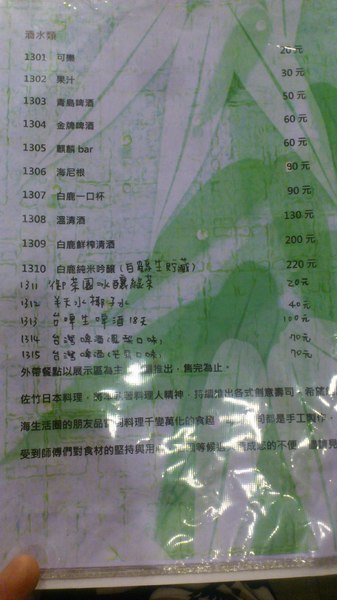 酒水類
1301 可樂 20元
1302 果汁 30元
1303 青島啤酒 50元
1304 金牌啤酒 60元
1305 麒麟 bar 60元
1306 海尼根 90元
1307 白鹿一口杯 90元
1308 溫清酒 130元
1309 白鹿鮮榨清酒 200元
1310 白鹿純米吟釀 220元
1311 御茶園冰釀綠茶 20元
1312 半天水椰子水 40元
1313 台啤生啤酒18天 100元
1314 台灣啤酒 口味) 70元
1315 台灣啤酒(芒果口味) 70元
外帶餐點以展示區為主 推出，售完為止。
佐竹日本料理， 料理人精神，將續推出各式創意壽司，希望
海生活圈的朋友品 料理千變萬化的食趣 都是手工製作，
受到師傅們對食材的堅持與用 等候 造成您的不便 請見